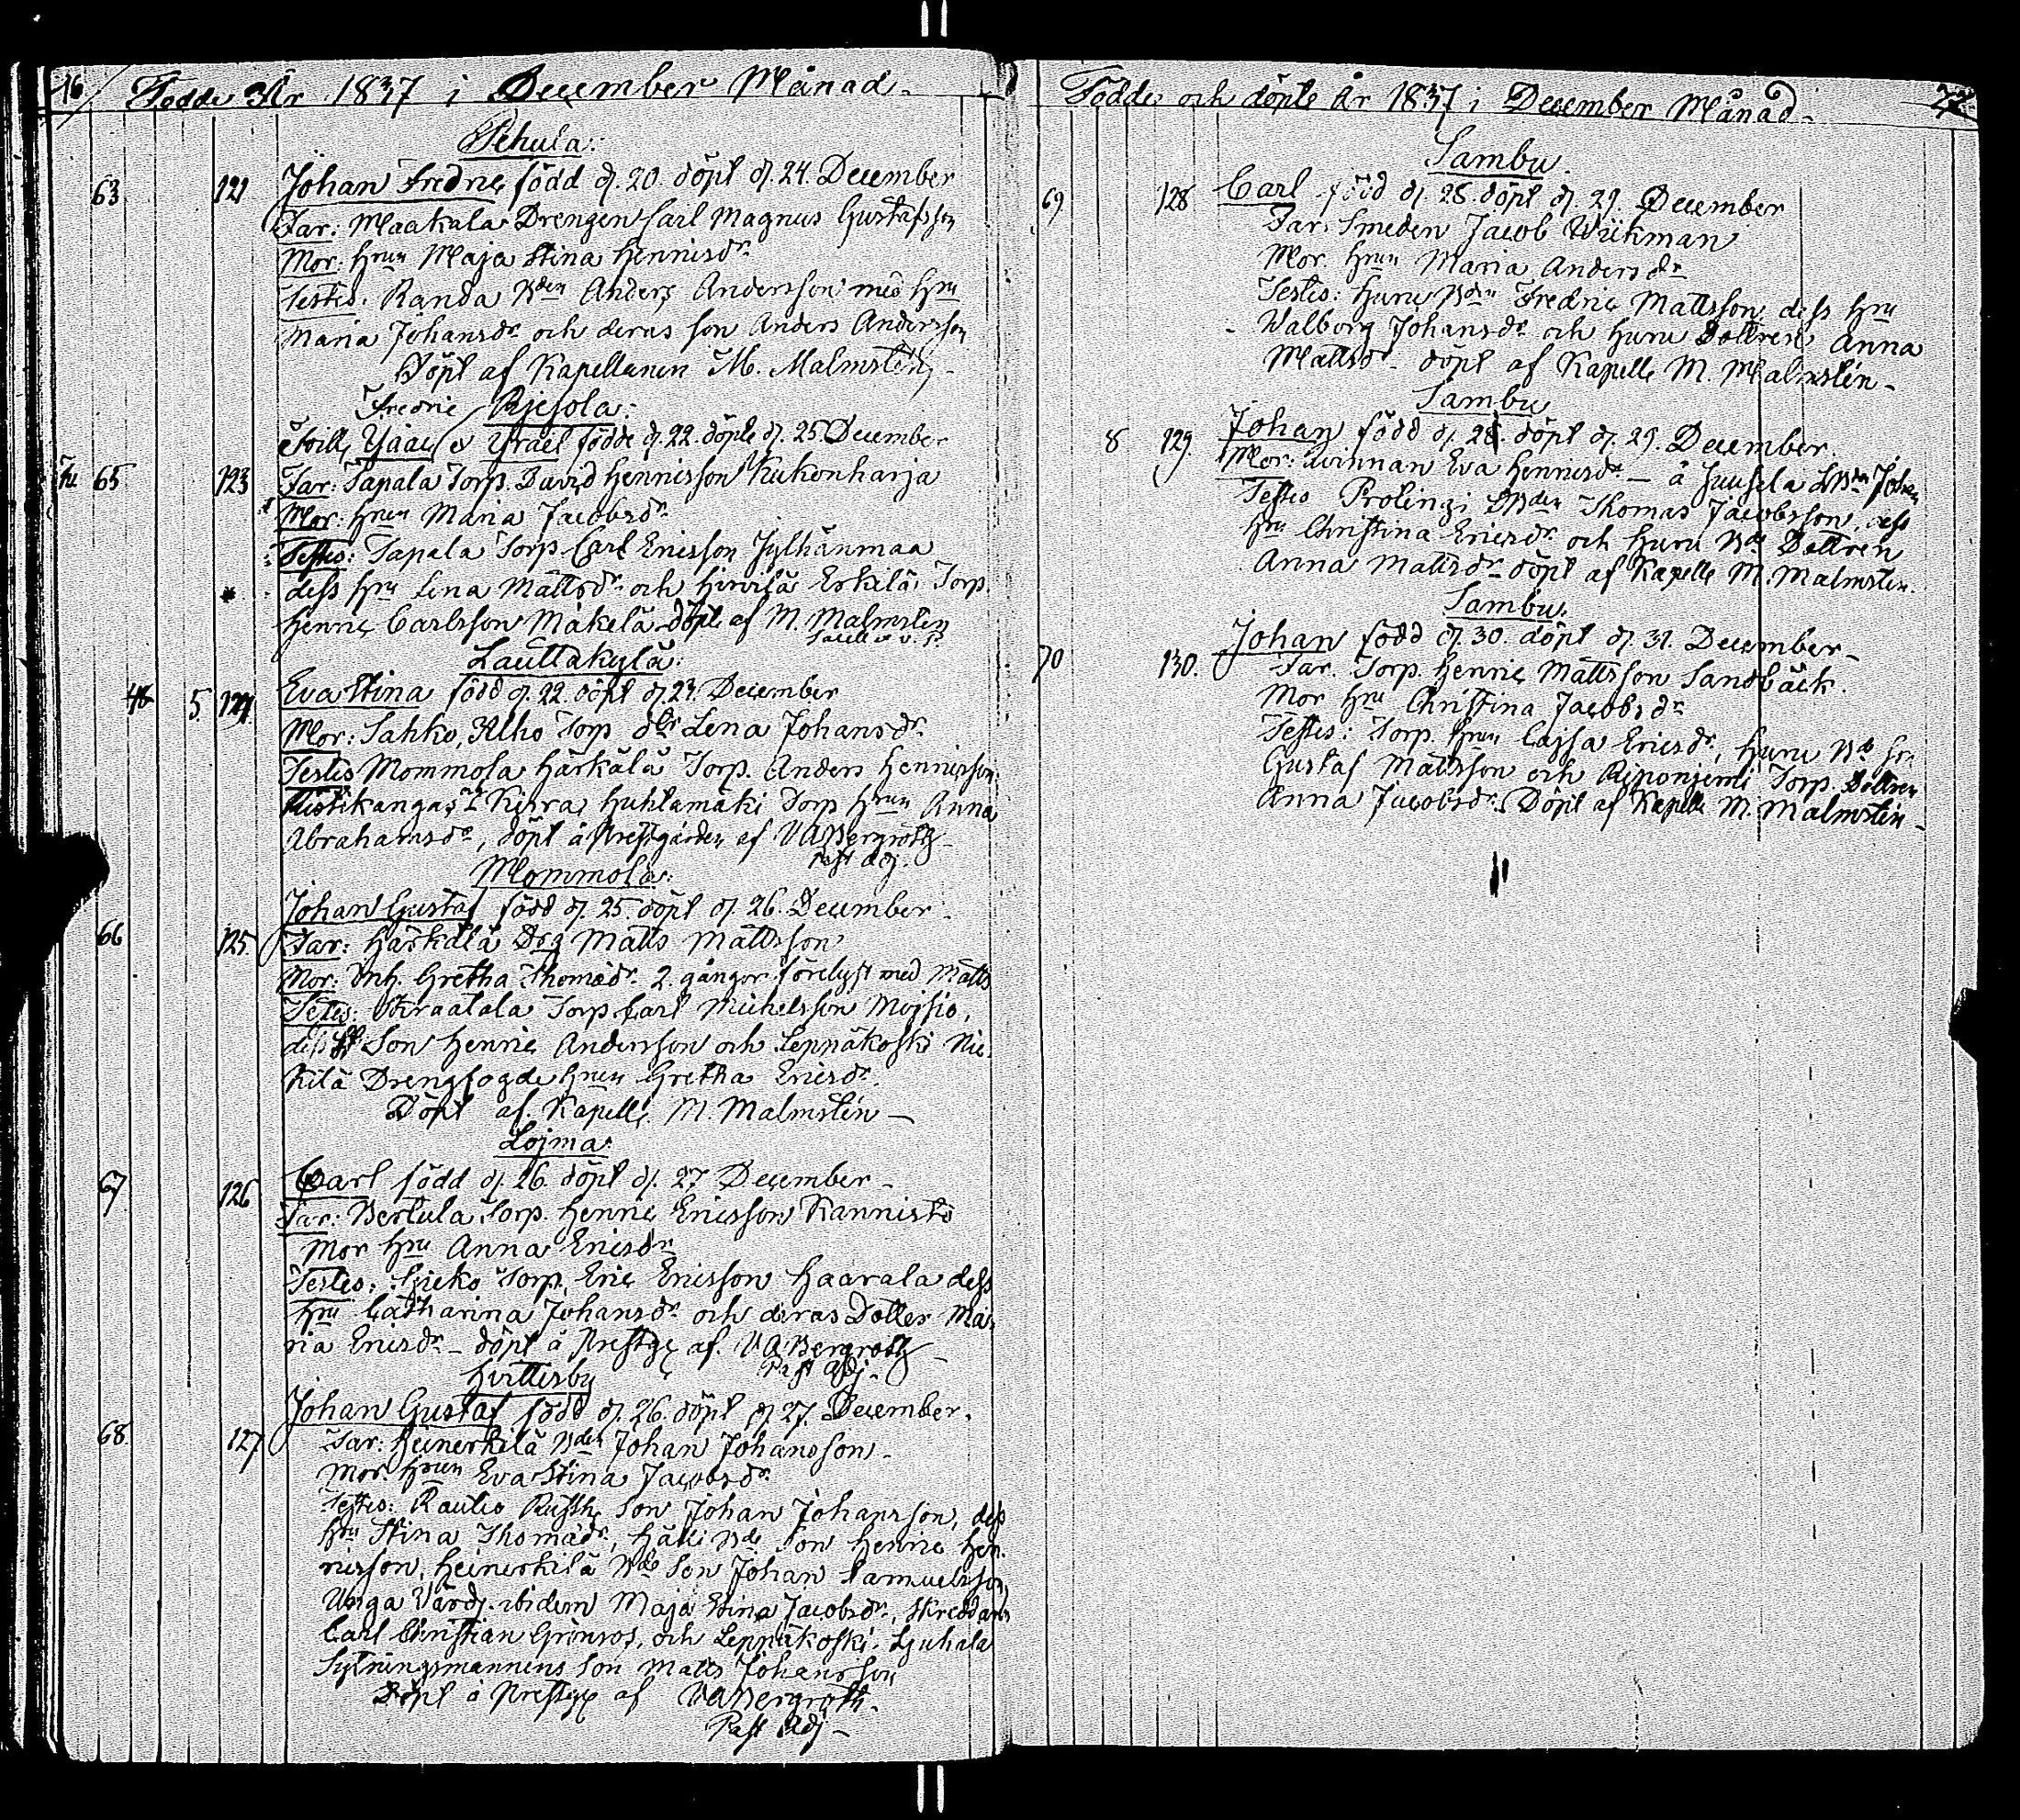 76
Födde År 1837 i December Månad.
Pehula:
63 121 Johan Fredric född d. 20. döpt d. 24. December
Far: Maakala Drengen Carl Magnus Gustafsson
Mor: Hrun Maja Stina Henricsdr
Testes: Randa Bden Anders Andersson med Hru
Maria Johansdr och deras son Anders Andersson
Döpt af Kapellanen M. Malmstén
Fredric Rjesola:
Isaac o Israel födde d. 22. döpte d. 25 December
65 123 Far: Tapala Torp. David Henricsson Kukonharja
Mor: Hrun Maria Jacobsdr
Testes: Tapala Torp Carl Ericsson Jylhänmaa
dess Hru Lina Mattsdr och Hirvilä Eskilä Torp.
Henric Carlsson Mäkelä döpte af M. Malmstén
Lauttakylä:
46 5. 124 Eva Stina född d. 22. döpt d. 23. December
Mor: Sahko, Alho Torp dtr Lena Johansdr
Testes Mommola Härkälä Torp. Anders Henricsson
Kihra Huhtamäki Torp Hrun Anna
Abrahamsdr, döpt å Prestgården af VABergroth
Past Adj.
Mommola:
Johan Gustaf född d. 25. döpt d. 26. December
66 125. Far: Härkälä Drg Matts Mattsson
Mor: Inh. Gretha Thomädr 2. gångor förelyst med Matts
Testes: Skraatala Torp Carl Michelsson Mojsio,
dess Son Henric Andersson och Leppäkoski Nic
kilä Drengfogde Hrun Gretha Ericsdr.
Döpt af Kapell. M. Malmstén
Lojma:
67 126 Carl född d. 26. döpt d. 27 December
Far: Bertula Torp. Henric Ericsson Kannisto
Mor Hru Anna Ericsdr
Testes: Torp. Eric Ericsson Haarala dess
Hru Catharina Johansdr och deras Dotter Ma
ria Ericsdr döpt å Prestg af. VABergroth
Past Adj.
Hvittisby
Johan Gustaf född d. 26. döpt d. 27. December.
68. 127 Far: Heinerkilä Bden Johan Johansson
Mor. Hrun Eva Stina Jacobsdr
Testes: Rautio Rusth. Son Johan Johansson, dess
Hru Stina Thomädr, Häkki Bde Son Henric Hen
ricsson, Heinerkilä Bde Son Johan Samuelsson,
Unga Värd. ibidem Maja Stina Jacobsdr, Skreddaren
Carl Christian Grönros, och Leppäkoski
Sytningsmannens Son Matts Johansson
Döpt å Prestg af VABergroth.
Past Adj
Födde och döpte År 1837 i December Månad. 77
Sambu.
69 128 Carl född d. 28. döpt d. 29. December
Far. Smeden Jacob Wiikman
Mor Hrun Maria Andersdr
Testes: Huru Bdn Fredric Mattsson, dess Hru
Walborg Johansdr och Huru Dottren Anna
Mattsdr. döpt af Kapell. M. Malmstén
Sambu
8 129. Johan född d. 28. döpt d. 29. December.
Mor: Qvinnan Eva Henricsdr å Juusela LBdn Johan
Testes Prolingi LBden Thomas Jacobsson, dess
Hru Christina Ericsdr och Huru Bde Dottren
Anna Mattsdr döpt af Kapell M. Malmstén.
Sambu.
70 130. Johan född d. 30. döpt d. 31. December
Far. Torp. Henric Mattsson Sandbäck.
Mor Hru Christina Jacobsdr
Testes: Torp. Hrun Cajsa Ericsdr, Huru Bde Son
Gustaf Mattsson och Torp. Dottren
Anna Jacobsdr Döpt af Kapell M. Malmstén